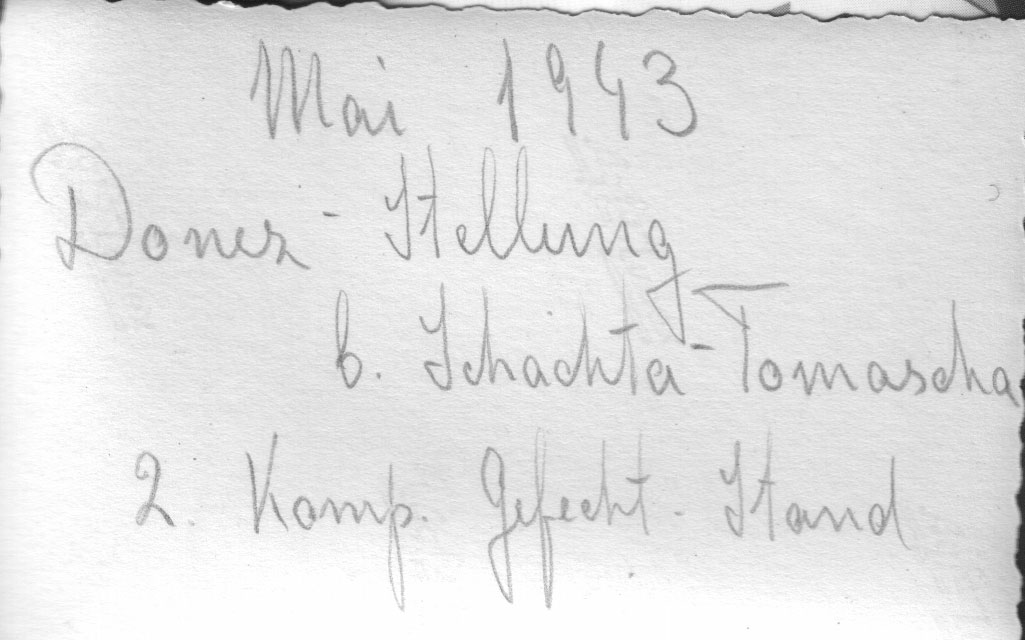 Mai 1943
Donez-Stellung
b. Schachta-Tomascha
2. Komp. Gefecht-Stand